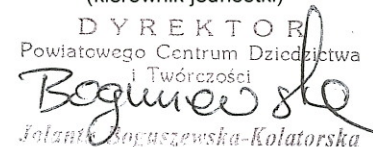 (kierownik jednostki)
DYREKTOR
Powiatowego Centrum Dziedzictwa
i Twórczości
Jolanta Boguszewska-Kolatorska